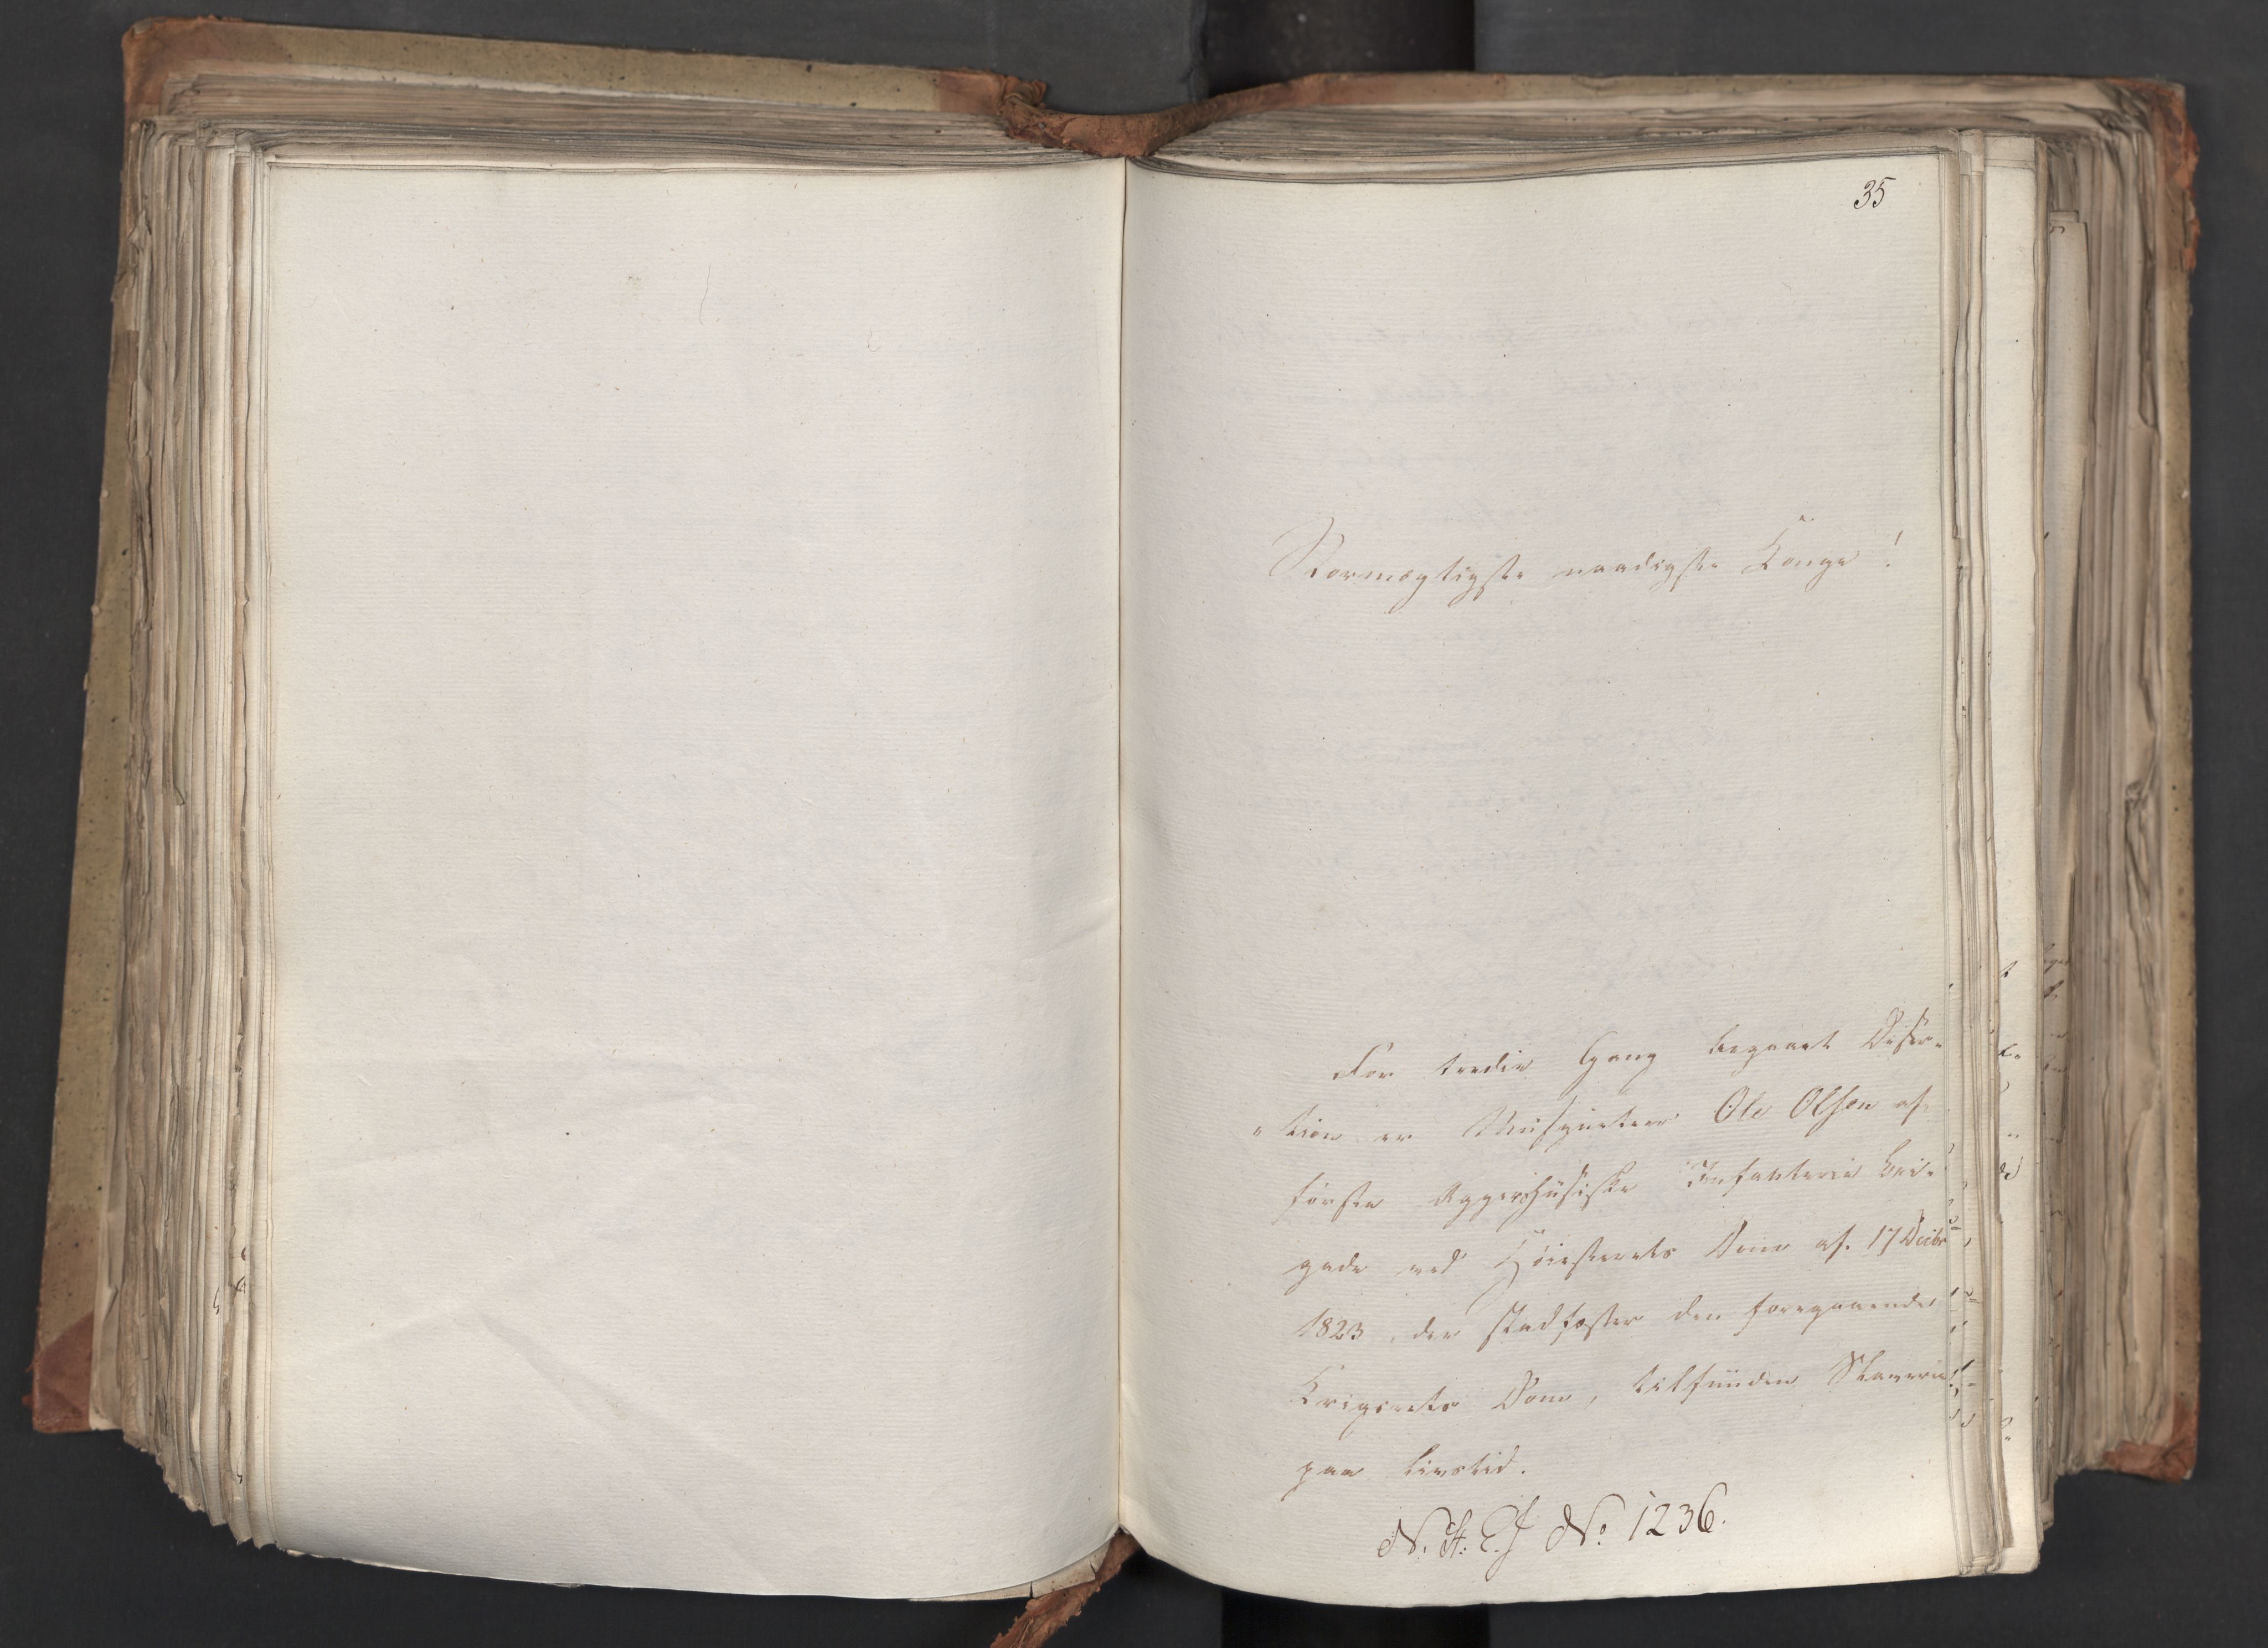 35
Stormægtigste naadigste Konge!
For tredie Gang begaaet Deser-
"tion er Musqueteer Ole Olsen af
første Aggershusiske Infanterie Bri-
gade ved Høiesterets Dom af 17 Decbr
1823, der stadfæster den foregaaende
Krigsrets Dom, tilfunden Slaverie
paa Livstid.
N. St: E. J No. 1236.